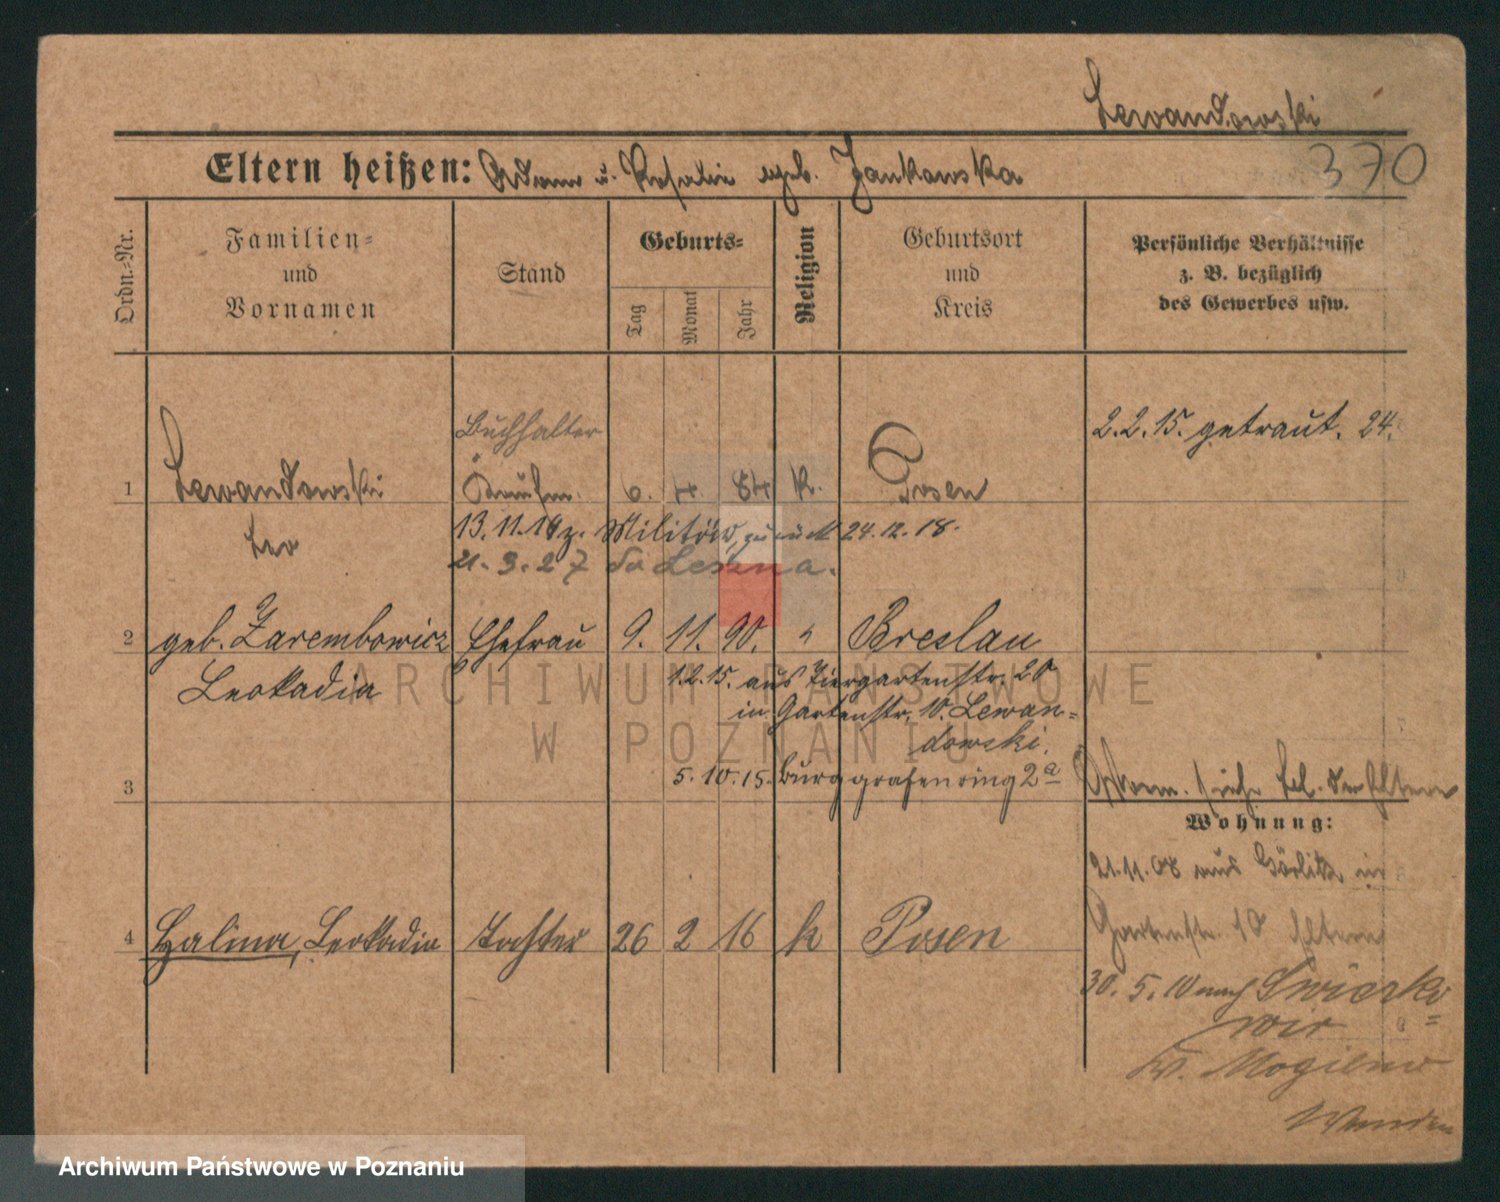 Lewandowski
Eltern heißen: Adam u. Rosalie geb. Jankowska
370
Ordn.=Nr.
Familien=
und
Vornamen
Stand
Geburts=
Tag
Monat
Jahr
Religion
Geburtsort
und
Kreis
Persönliche Verhältnisse
z. B. bezüglich
des Gewerbes usw.
Buchhalter
2.2.15. getraut. 24.
1 Lewandowski Kaufm. 6. 4. 84 k. Posen
Leo
13.11.14 z. Militär, zurück 24.12.18.
21.3.27 do Leszna.
2 geb. Zarembowicz Ehefrau 9. 11. 90. " Breslau
Leokadia
1.2.15. aus Tiergartenstr. 20
in Gartenstr. 10. Lewan=
dowski.
5.10.15. Burggrafenring 2a
3
siehe der Eltern
Wohnung:
21.11.08 aus Görlitz in
Gartenstr. 10 Eltern
4 Halina, Leokadia Tochter 26 2 16 k Posen
30.5.10 nach
Kr. Mogilno
ARCHIWUM PAŃSTWOWE
W POZNANIU
Archiwum Państwowe w Poznaniu